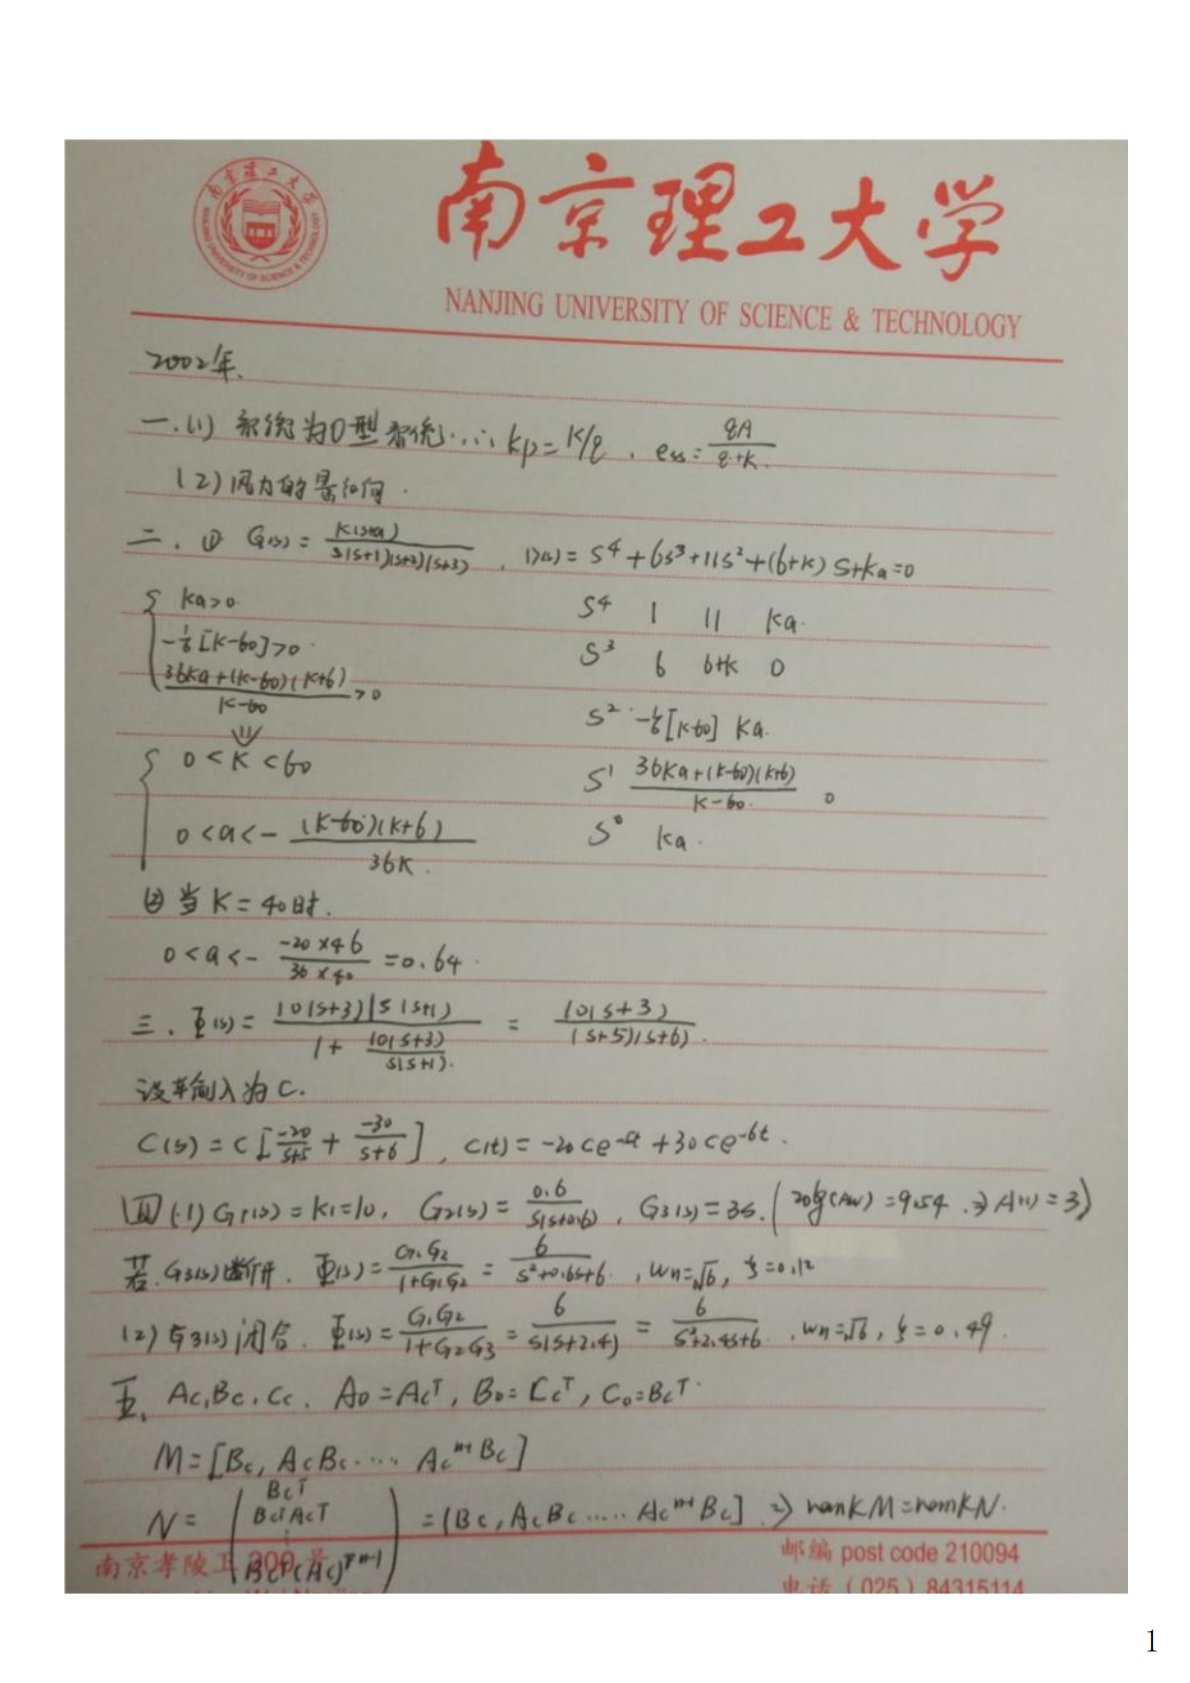 南京理工大学
NANJING UNIVERSITY OF SCIENCE & TECHNOLOGY
2002年.
一.(1) 系统为0型系统.∴ kp=K/q . ess=qA/(q+K).
(2)风力的
二. ① G(s)=K(s+a)/(s(s+1)(s+2)(s+3)) , D(s)=S⁴+6s³+11s²+(6+K)S+Ka=0
Ka>0 S⁴ 1 11 Ka.
-1/6[K-60]>0 S³ 6 6+K 0
(36Ka+(K-60)(K+6))/(K-60)>0 S² -1/6[K-60] Ka.
0<K<60 S¹ (36Ka+(K-60)(K+6))/(K-60) 0
0<a<-(K-60)(K+6)/36K. S⁰ Ka.
② 当K=40时.
0<a<-(-20×46)/(36×40)=0.64.
三. Φ(s)=(10(s+3)/s(s+1))/(1+10(s+3)/s(s+1))=10(s+3)/((s+5)(s+6)).
设车输入为C.
C(s)=C[-20/(s+5)+-30/(s+6)], c(t)=-20ce^-5t+30ce^-6t.
四(1) G1(s)=K1=10, G2(s)=0.6/(s(s+0.6)), G3(s)=3s.(20lg(Aw)=9.54.⇒A(1)=3)
若.G3(s)断开. Φ(s)=G1G2/(1+G1G2)=6/(s²+0.6s+6). , Wn=√6, ξ=0.12
(2) 与G3(s)闭合. Φ(s)=G1G2/(1+G2G3)=6/(s(s+2.4))=6/(s²+2.4s+6). wn=√6, ξ=0.49.
五. Ac,Bc,Cc. A0=Ac^T, B0=Cc^T, C0=Bc^T.
M=[Bc, AcBc.... Ac^n-1 Bc]
N=(Bc^T Bc^TAc^T ⋮ Bc^T(Ac)^T n-1)=[Bc, AcBc..... Ac^n-1 Bc] ⇒ rankM=rankN.
南京孝陵卫200号 邮编 post code 210094
电话 (025) 84315114
1